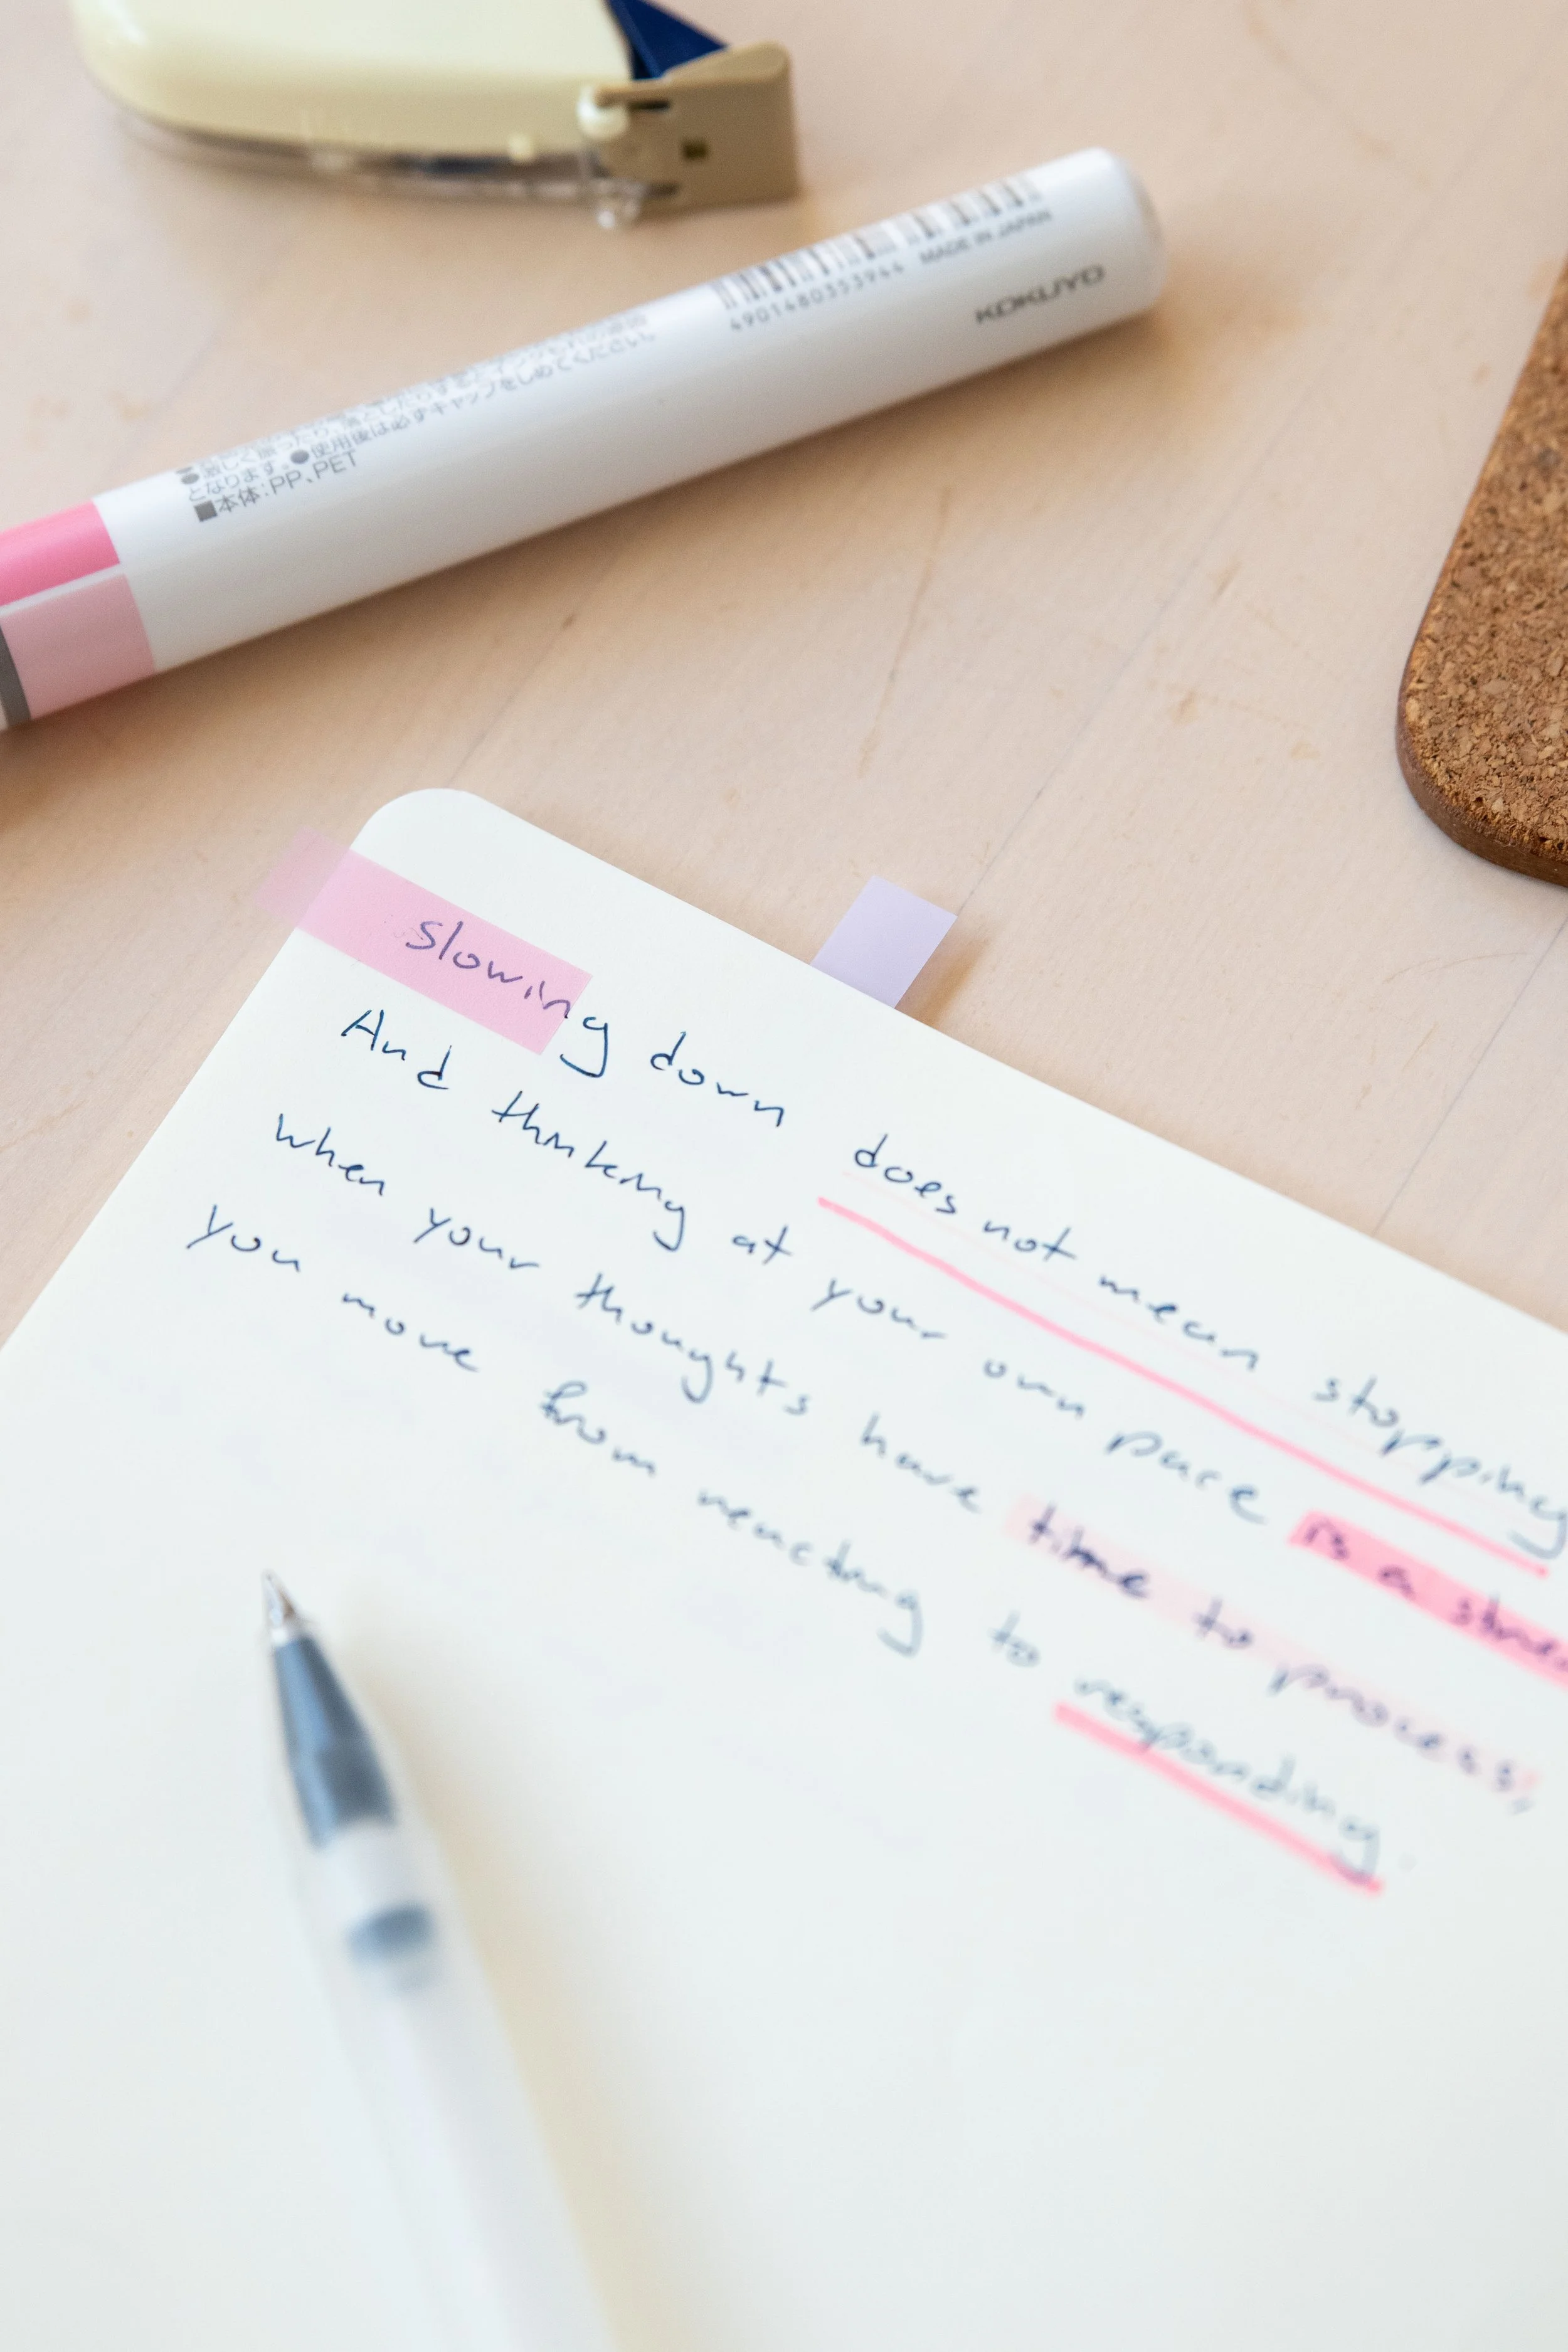 4901480353944 MADE IN JAPAN
KOKUYO
となります。●使用後は必ずキャップをしめてください。
■本体:PP、PET
slowing down does not mean stopping
And thinking at your own pace is a
when your thoughts have time to process,
you move from reacting to responding.